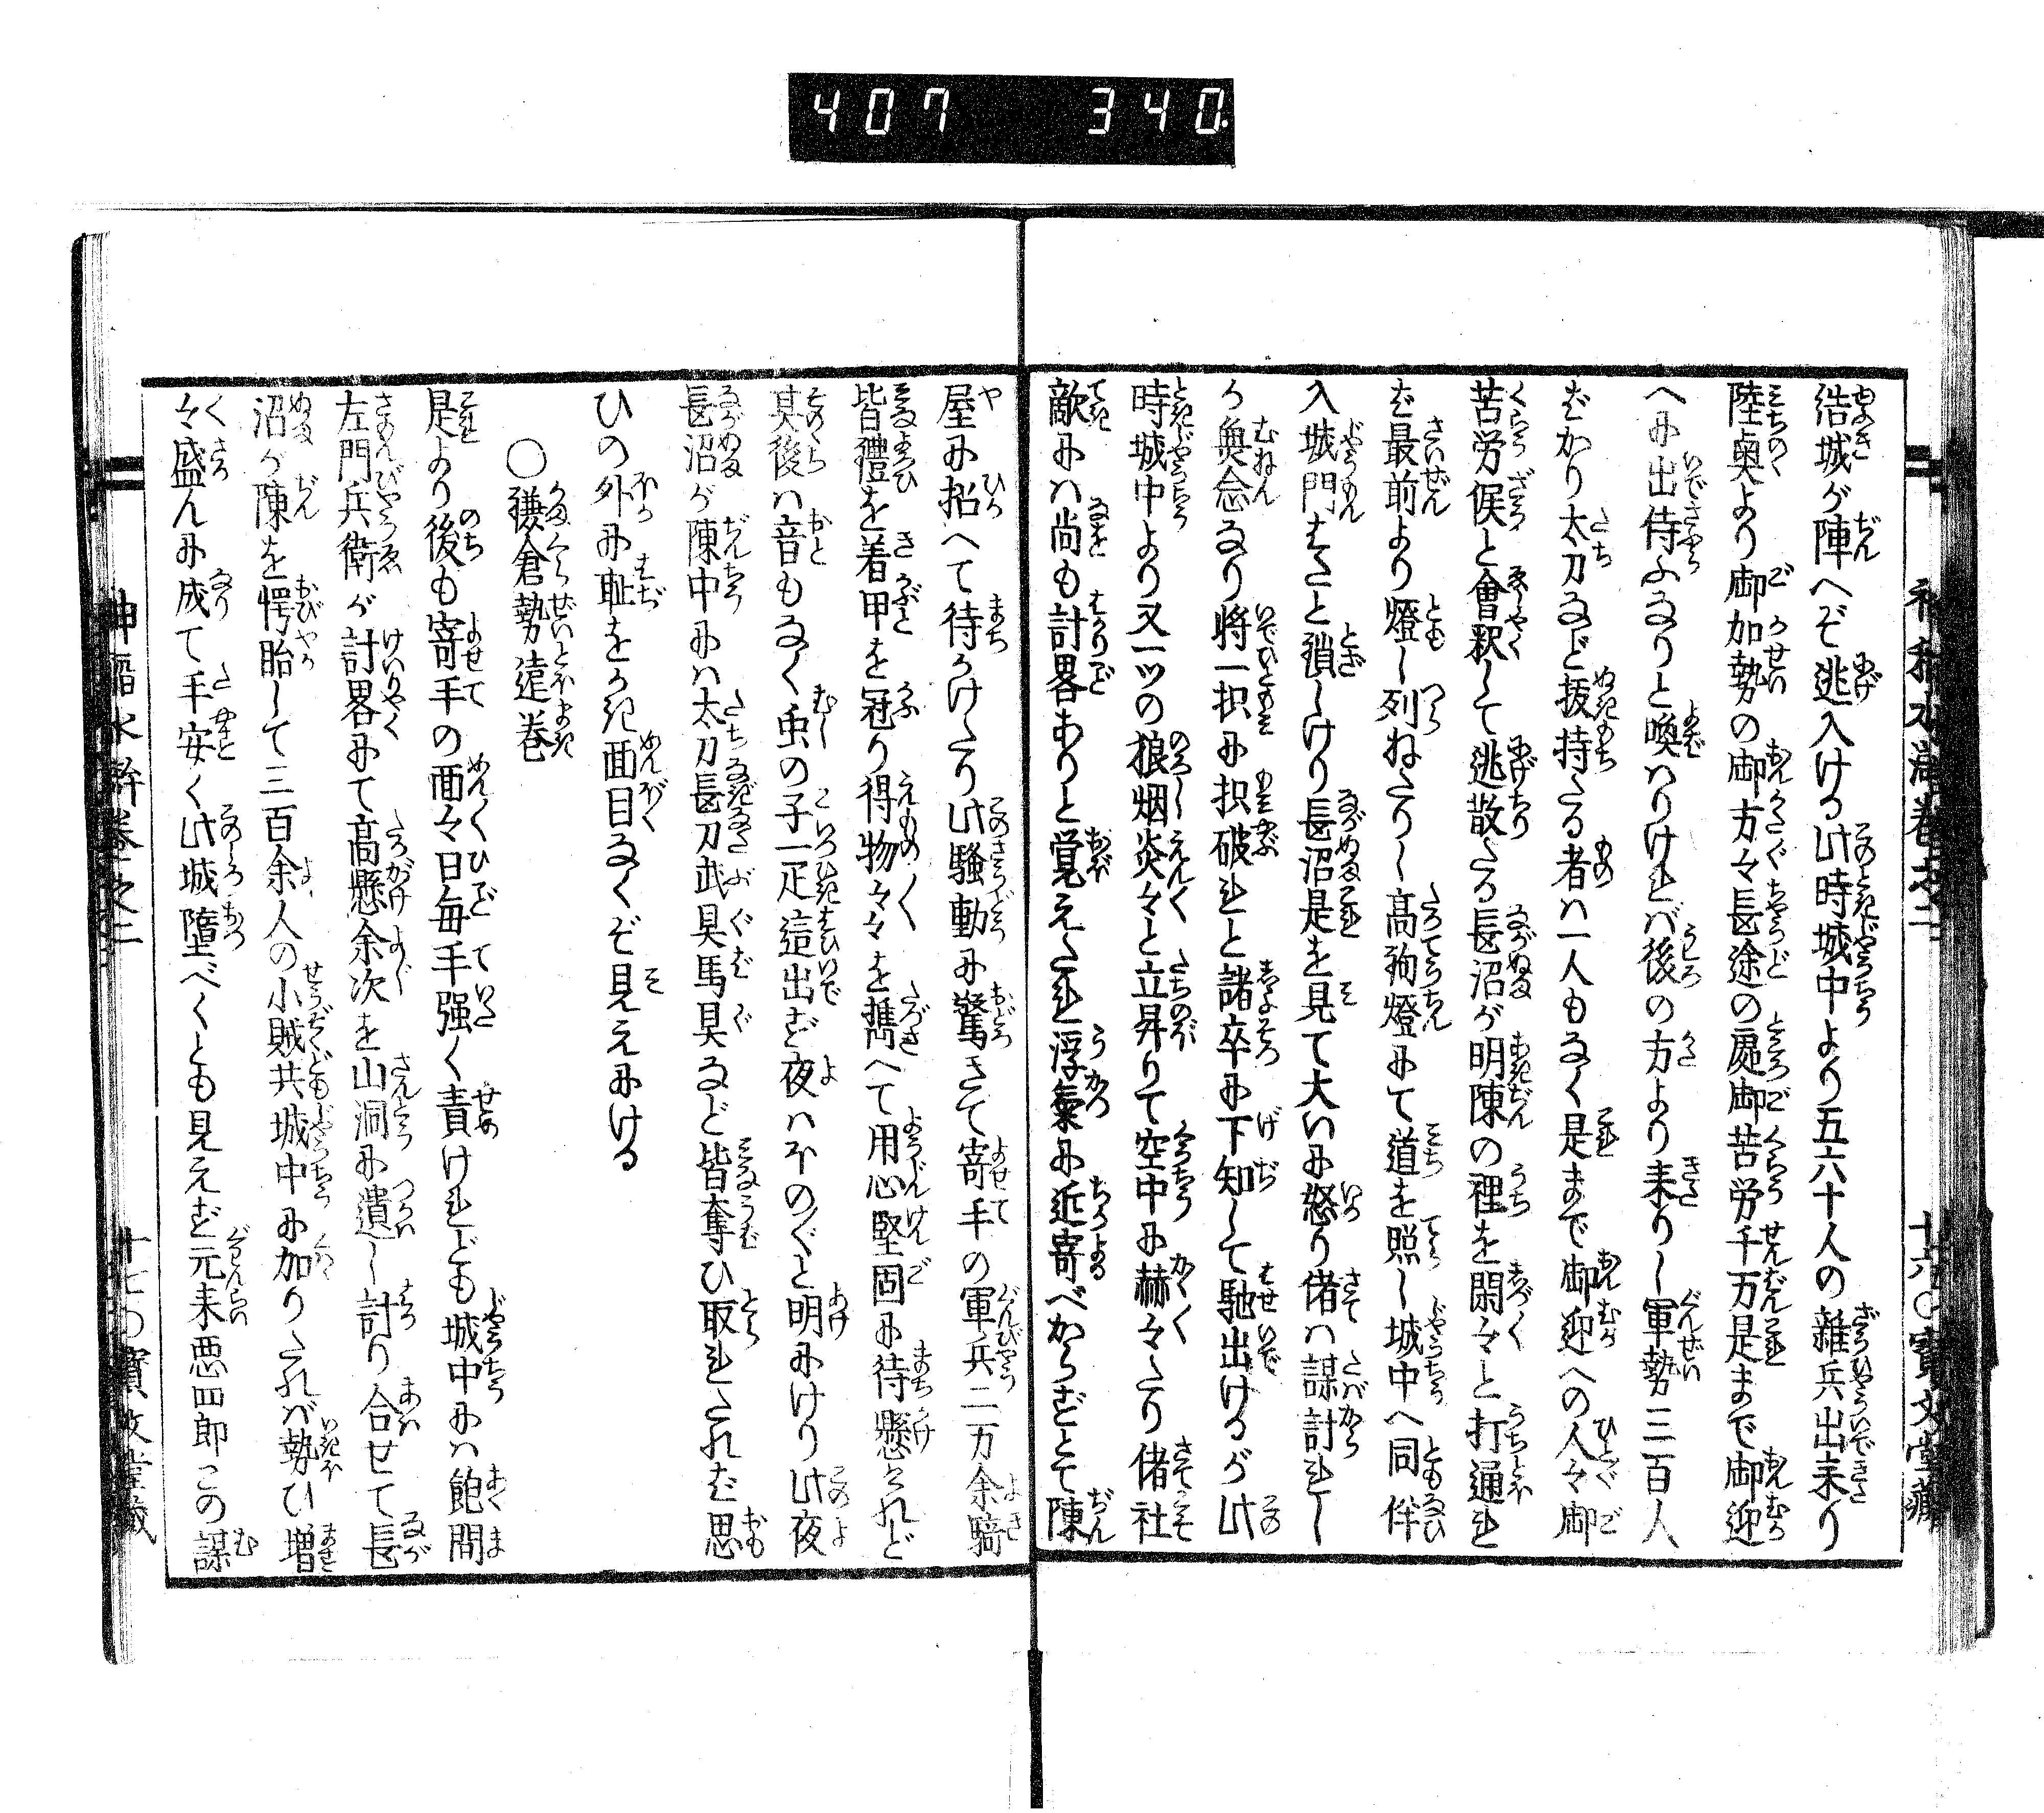 407 340.
結城が陣へぞ迯入ける此時城中より五六十人の雑兵出来り
陸奥より御加勢の御方々長途の處御苦労千万是まで御迎
へに出侍ふなりと喚はりければ後の方より来りし軍勢三百人
ばかり太刀など抜持たる者は一人もなく是まで御迎への人々御
苦労候と會釈して迯散たる長沼が明陳の裡を閑々と打通れ
ば最前より燈し列ねたりし高挑燈にて道を照し城中へ同伴
入城門はたと鎖しけり長沼是を見て大いに怒り偖は謀計れし
か無念なり将一択に択破れと諸卒に下知して馳出けるが此
時城中より又一ツの狼烟炎々と立昇りて空中に赫々たり偖社
敵には尚も計畧ありと覚えたれ浮氣に近寄べからずとて陳
屋に招へて待かけたり此騒動に驚きて寄手の軍兵二万余騎
皆禮を着甲を冠り得物々々を携へて用心堅固に待懸されど
其後は音もなく虫の子一疋這出ず夜はほの〲と明にけり此夜
長沼が陳中には太刀長刀武具馬具など皆奪ひ取れたれば思
ひの外に耻をかき面目なくぞ見えにける
〇鎌倉勢遠巻
是より後も寄手の面々日毎手强く責けれども城中には飽間
左門兵衛が計畧にて高懸余次を山洞に遺し計り合せて長
沼が陳を愕胎して三百余人の小賊共城中に加りたれば勢ひ増
々盛んに成て手安く此城墮べくとも見えず元来悪四郎この謀
巻之二
十七〇寳文堂藏
十六〇寳文堂藏